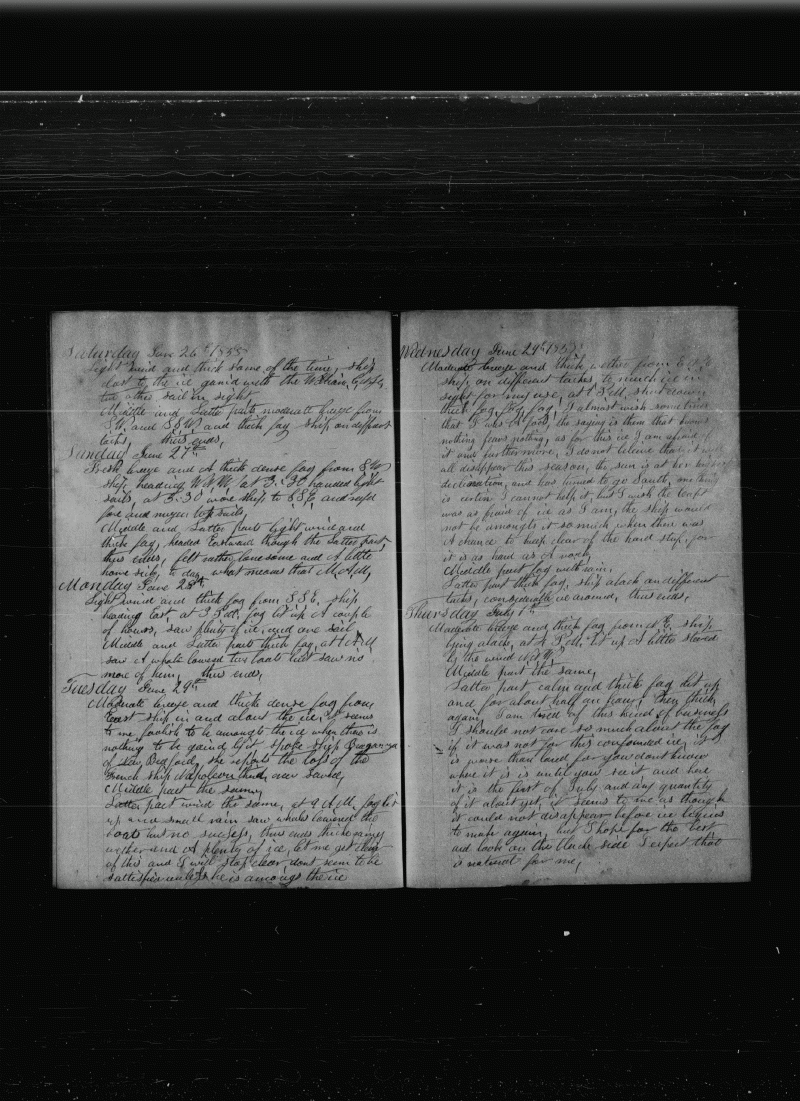 Saturday June 26th 1858
Light wind and thick some of the time, ship
close to the ice gam'd with the
the other sail in sight
Middle and Latter parts moderate breeze from
SW. and SSW and thick fog ship on different
tacks, this ends,
Sunday June 27th
Fresh breeze and A thick dense fog from SW
ship heading W.N.W, at 3.30 handed light
sails, at 5.30 wore ship to SSE, and reefd
fore and mizen topsails,
Middle and Latter parts light wind and
thick fog, headed Eastward though the Latter part,
thus ends, felt rather lonesome and A little
home sick, to day, what means that M.A.M,
Monday June 28th
Light wind and thick fog from SSE, ship
heading East, at 3 P.M. fog lit up A couple
of hours, saw plenty of ice, and one sail
Middle and Latter parts thick fog, at A.M
saw A whale lowered two boats but saw no
more of him, thus ends,
Tuesday June 29th
Moderate breeze and thick dense fog from
East ship in and about the ice, it seems
to me foolish to be amongst the ice when there is
nothing to be gaind by it Spoke Ship Braganza
of New Bedford, she reports the loss of the
French ship Napoleon third, crew saved,
Middle part the same,
Latter part wind the same, at 9 A.M. fog lit
up and small rain saw whales lowered the
boats but no success, thus ends thick rainy
wether and A plenty of ice, let me get clear
of this and I will stop clear dont seem to be
sattisfied unless he is amongs the ice
Wednesday June 29th 1858
Moderate breeze and thick wether from
ship on different tacks, to much ice in
sight for my use, at 1 P.M. shut down
thick fog, fog, fog, I almost wish sometimes
that I was A fool, the saying is them that knows
nothing fears nothing, as for this ice I am afraid of
it and furthermore, I do not beleive that it will
all disappear this season, the sun is at her
declination, and has turned to go South, one thing
is certin I cannot help it, but I wish the Capt
was as fraid of ice as I am, the ship would
not be amongst it so much when there was
A chance to keep clear of the hard ship, for
it is as hard as A rock,
Middle part fog with rain,
Latter part thick fog, ship aback on different
tacks, considerable ice around, thus ends,
Thursday July 1st
Moderate breeze and thick fog from N E, ship
lying aback, at 4 P.M. lit up A little steered
by the wind N.N.W,
Middle part the same,
Latter part calm and thick fog lit up
and for about half an hour, then thick
again, I am tired of this kind of business
I should not care so much about the fog
if it was not for this confounded ice, it
is worse than land for you dont know
where it is until you see it and here
it is the first of July and any quantity
of it about yet, it seems to me as though
it could not disappear before ice begins
to make again, but I hope for the best
and look on the black side I expect that
is natural for me,